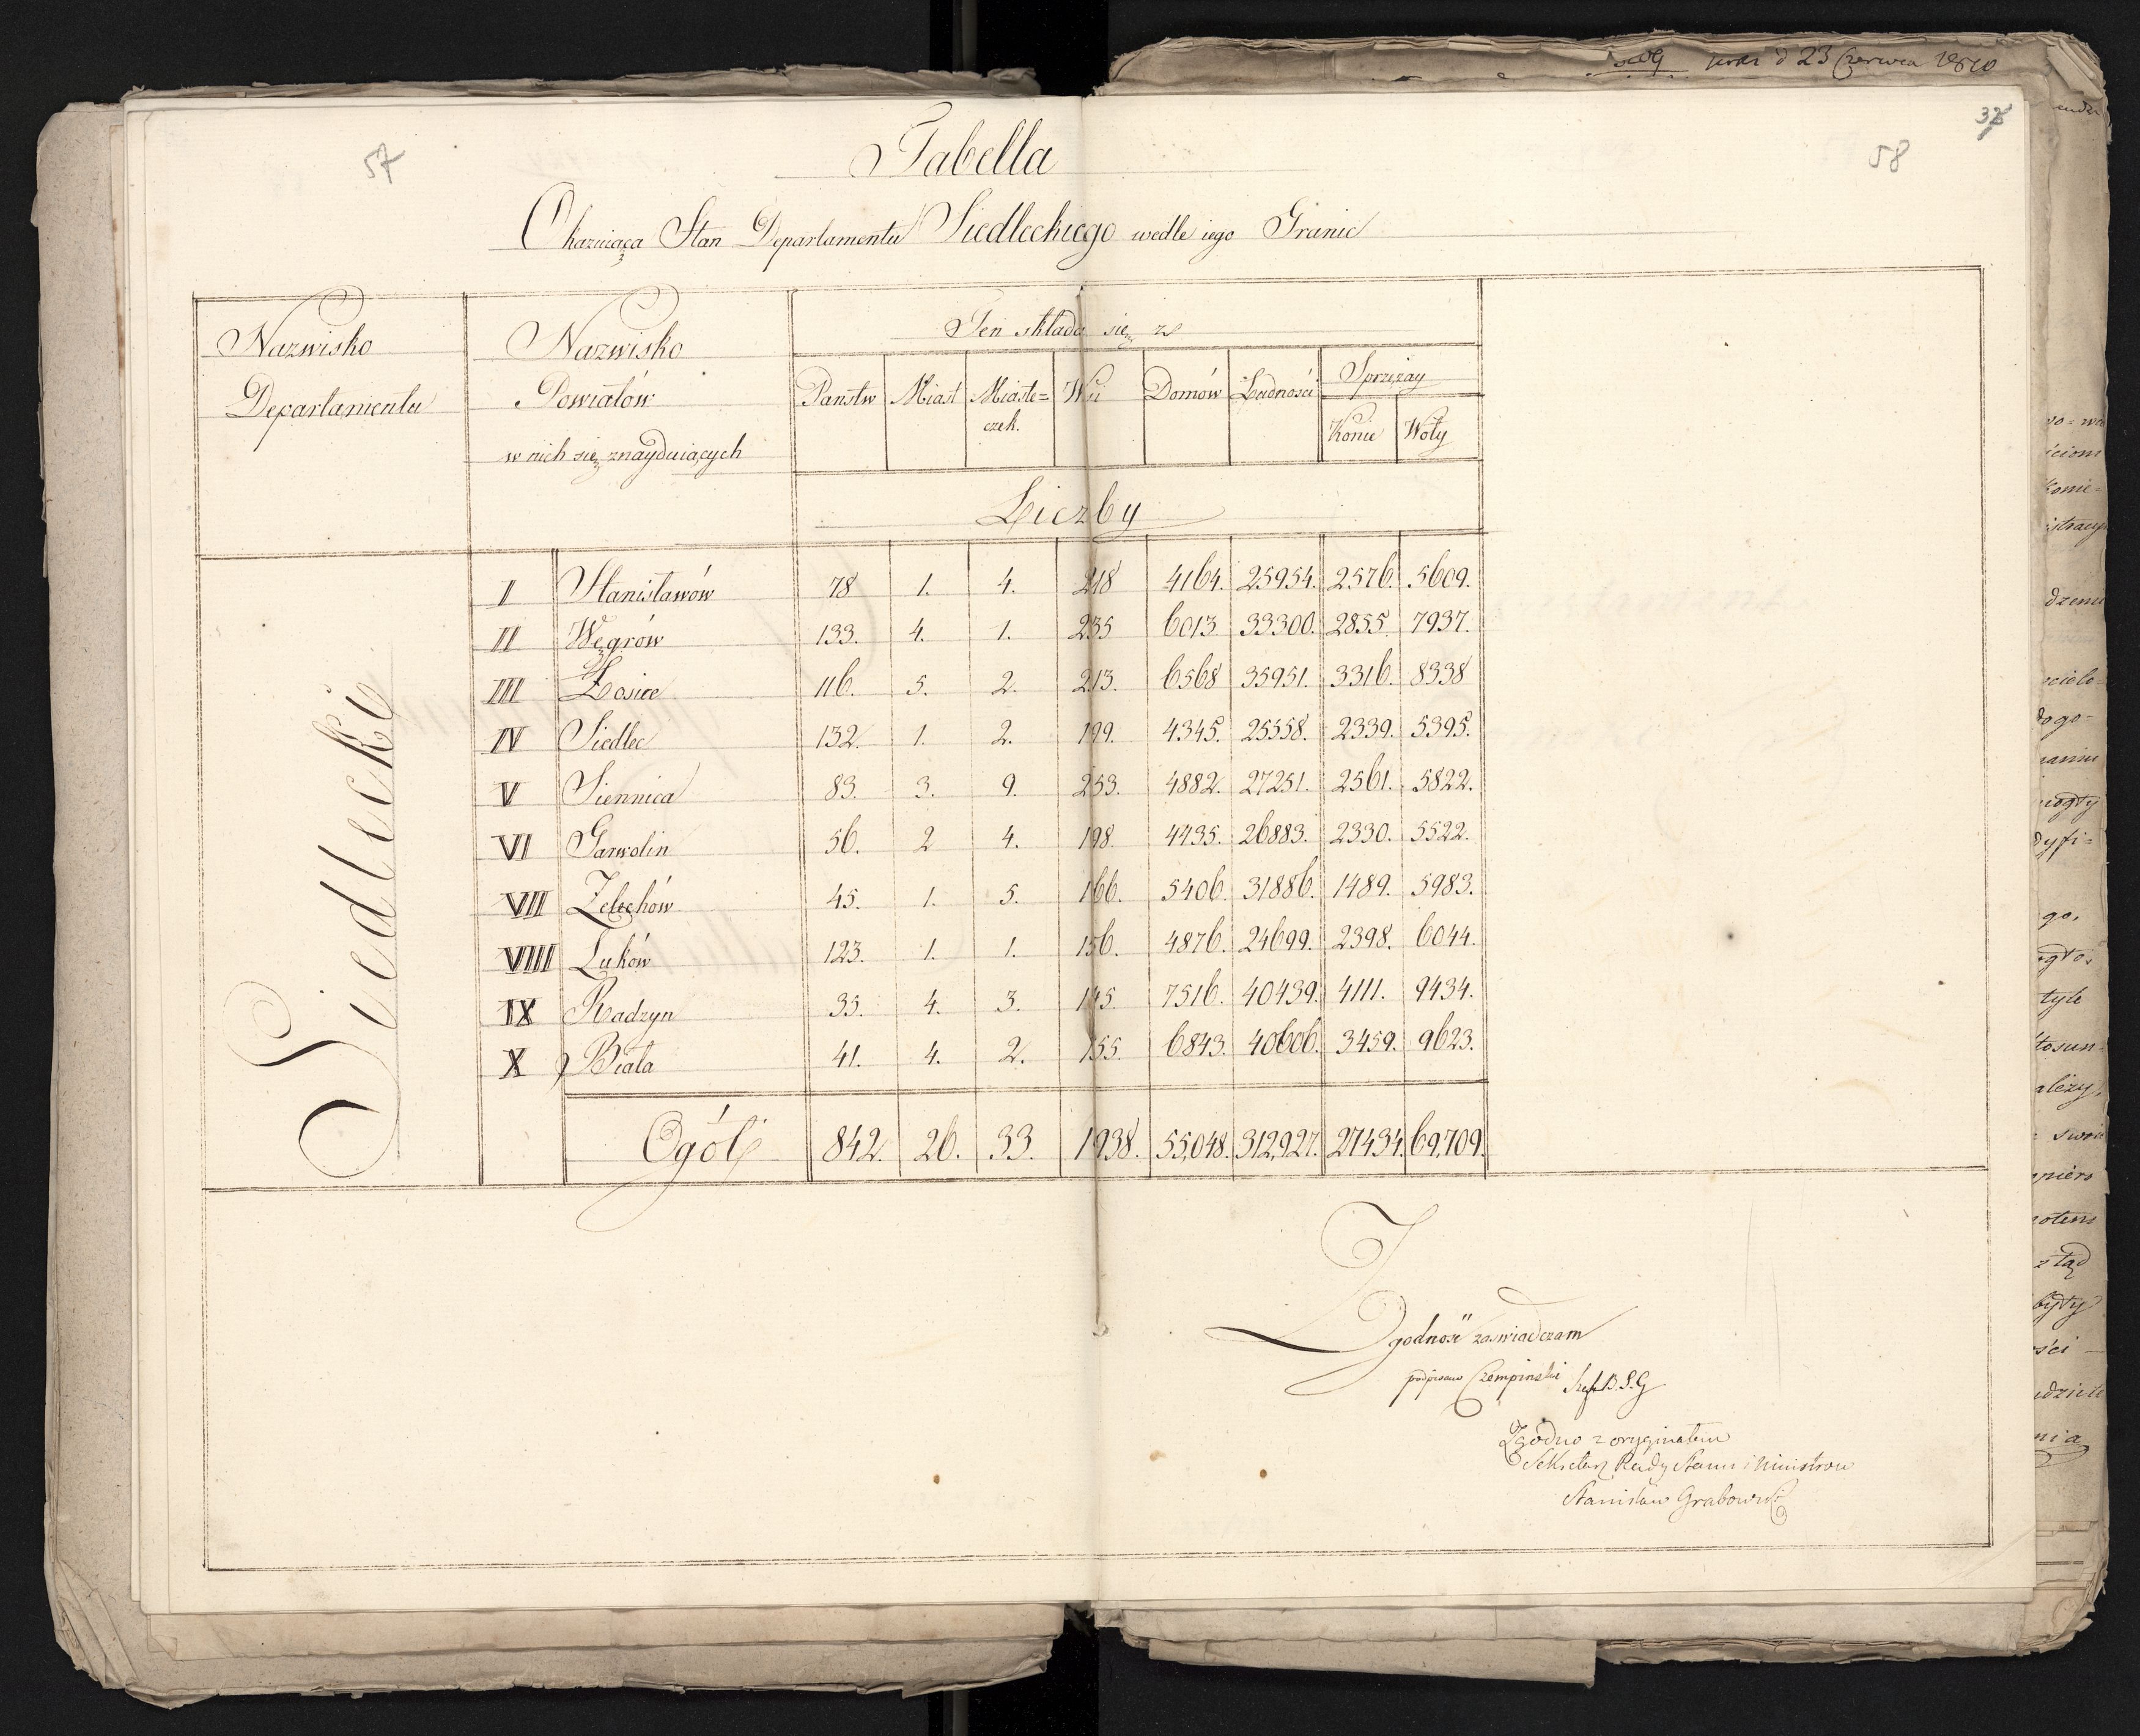 szóły
d 23 Czerwca 1810
37
57
58
Tabella
Okazuiąca Stan Departamentu Siedleckiego wedle iego Granic
Nazwisko
Departamentu
Nazwisko
Powiatów
w nich się znayduiących
Ten składa się z
Państw Miast Miaste= Wsi Domów Ludności Sprzężay
czek. Konie Woły
Liczby
Siedlecki
I Stanisławów 78 1. 4. 218 4164. 25954. 2576. 5609.
II Węgrów 133. 4. 1. 235 6013. 33300. 2855. 7937.
III Łosice 116. 5. 2. 213. 6568 35951. 3316. 8338
IV Siedlec 132. 1. 2. 199. 4345. 25558. 2339. 5395.
V Siennica 83. 3. 9. 253. 4882. 27251. 2561. 5822.
VI Garwolin 56. 2 4. 198. 4435. 26883. 2330. 5522.
VII Zelechów 45. 1. 5. 166. 5406. 31886. 1489. 5983.
VIII Łuków 123. 1. 1. 156. 4876. 24699. 2398. 6044.
IX Radzyn 35. 4. 3. 145. 7516. 40439. 4111. 9434.
X Biała 41. 4. 2. 155. 6843. 40606. 3459. 9623.
Ogół 842. 26. 33. 1938. 55,048. 312,927. 27434. 69,709.
Zgodność zaswiadczam
podpisano Czempinski Szef B. S. G
Zgodno z oryginałem
Sekretarz Rady Stanu i Ministrow
Stanisław Grabowski